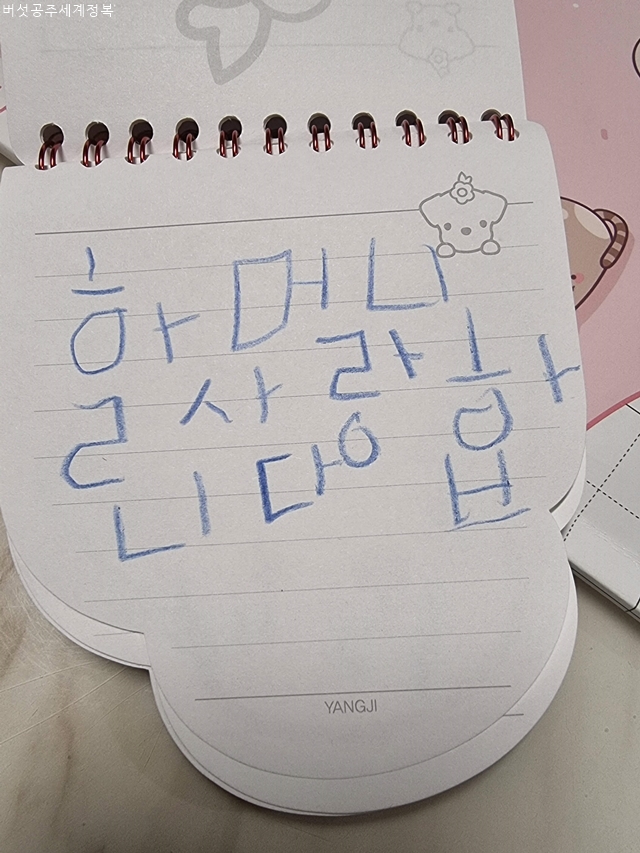 버섯공주세계정복
할머니
사랑합
니다
YANGJI